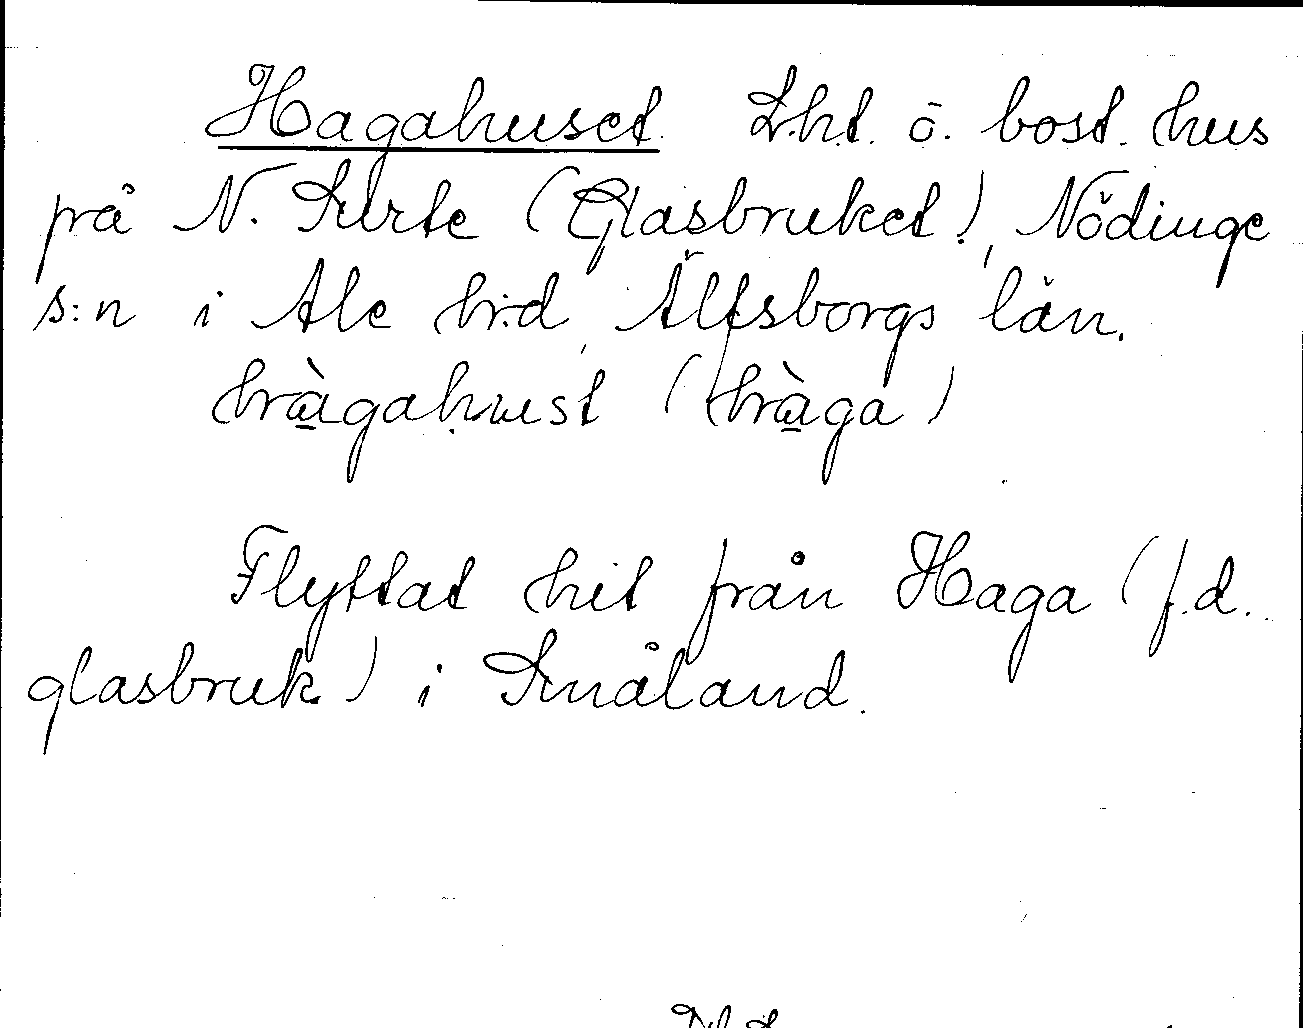 Hagahuset. Lht. o. bost. hus
på N. Surte (Glasbruket), Nödinge
s:n i Ale h:d, Älfsborgs län.
hàgahust (hàga)
Flyttat hit från Haga (f.d.
glasbruk) i Småland.